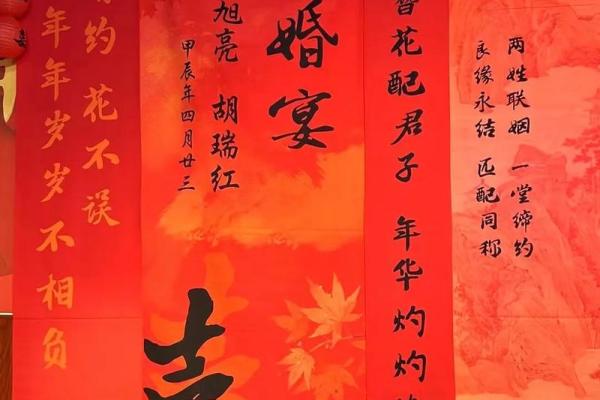 两姓联姻 一堂缔约
良缘永结 匹配同称
花配君子 年华灼灼
婚宴
旭亮 胡瑞红
甲辰年四月廿三
约花不误
年年岁岁不相负